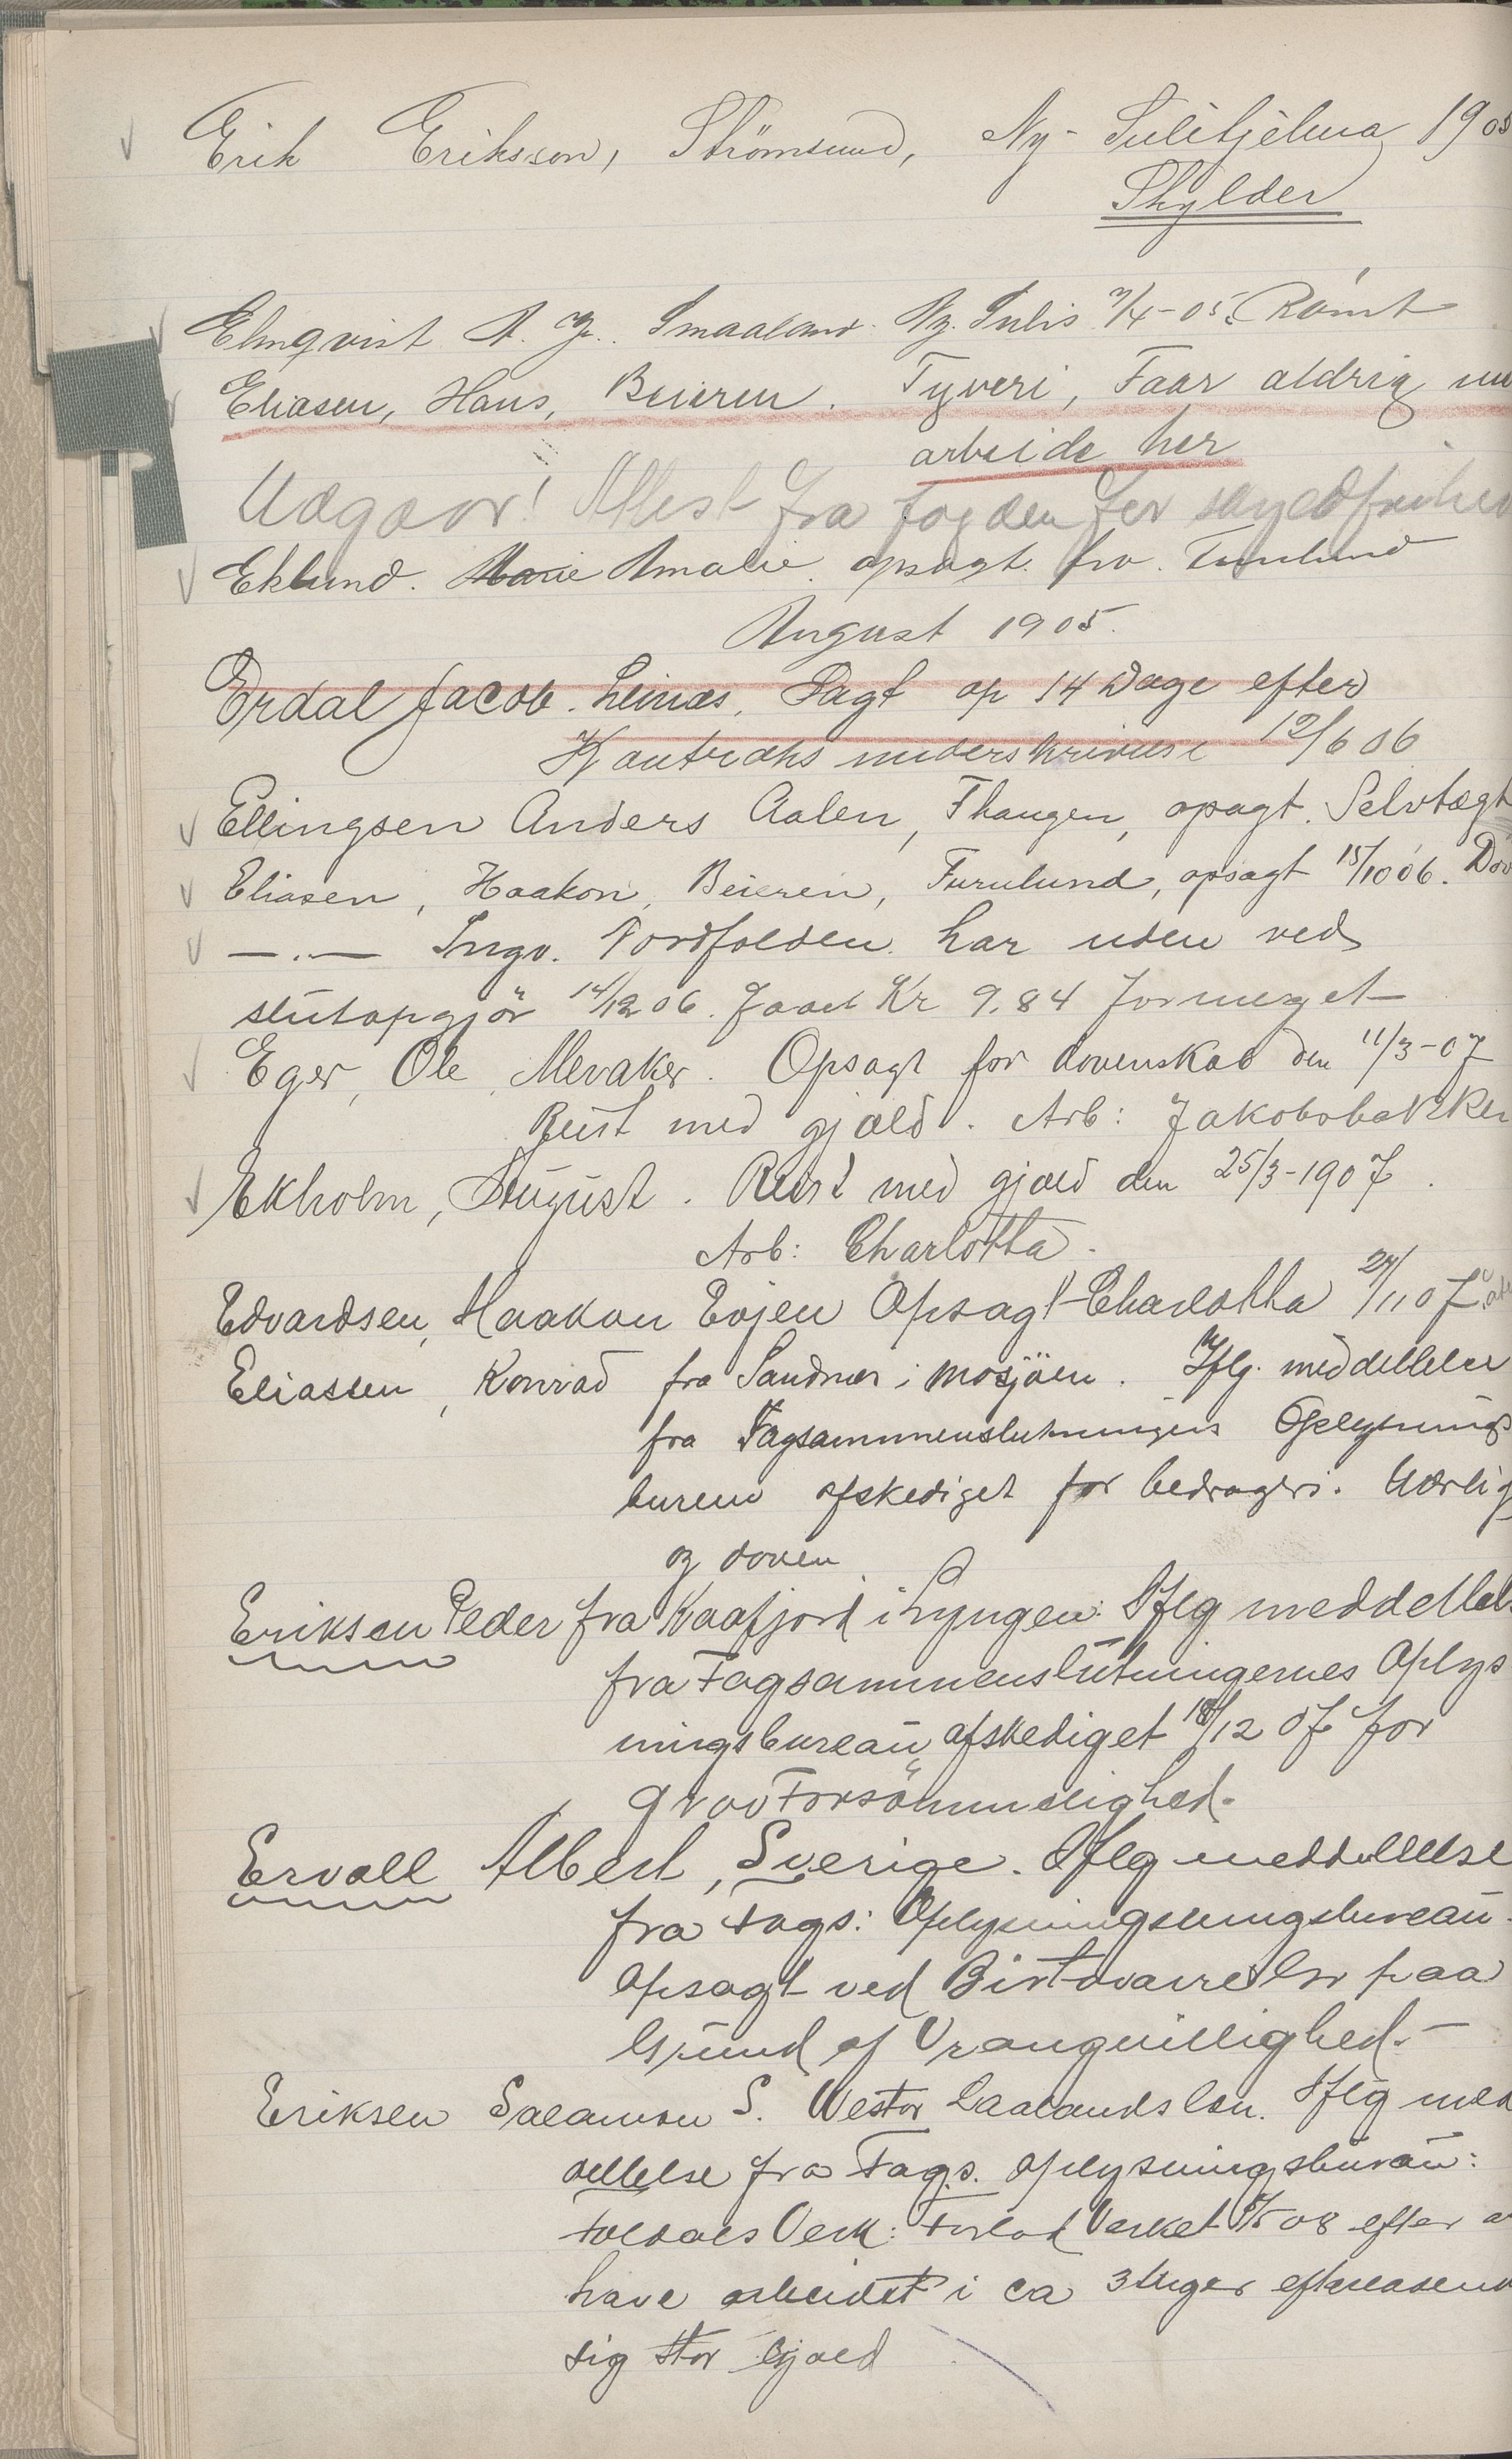 Erik Eriksson, Strömsund, Ny-Sulitjelma 1905
Skylder
Elmqvist A. G. Smaaland. Ny. Sulis 7/4-05. Römt
Eliasen, Hans, Beieren. Tyveri, Faar aldrig
arbeide her
Udgaar! Attest fra fogden for
Eklund. Marie Amalie opsagt. fra. Furulund
August 1905.
Erdal Jacob. Leinæs, Sagt op 14 Dage efter
Kontrakts underskrivelse 12/6 06
Ellingsen Anders Aalen, Fhaugen, opsagt. Selvtægt
Eliasen, Haakon, Beieren, Furulund, opsagt 15/10 06.
—.— Ingv. Nordfolden. har uden ved
slutopgjör 14/12 06. faaet Kr 9.84 formeget
Eger, Ole, Meraker. Opsagt for dovenskab den 11/3-07
Reist med gjæld. Arb: Jakobsbakken
Ekholm, August. Reist med gjæld den 25/3-1907.
Arb: Charlotta.
Edvardsen, Haakon Evjen Opsagt Charlotta 27/11 07
Eliassen, Konrad fra Sandnes i Mosjöen. Iflg. meddellelse
fra Fagsammenslutningens Oplysnings
bureau afskediget for bedrageri. Uærlig
og doven
Eriksen Peder fra Kaafjord i Lyngen. Iflg meddellelse
fra Fagsammenslutningernes Oplys
ningsbureau, afskediget 18/12 07 for
grov Forsömmelighed.
Ervall Albert, Sverige. Iflg meddellelse
fra Fags: Oplysningsningsbureau.
opsagt ved Birtavarre paa
Grund af Vrangvillighed.-
Eriksen Salamon S. Wester Iflg med
dellelse fra Fags. oplysningsburau:
Foldals Verk: Forlod Verket 08 efter at
have arbeidet i ca 3 Uger efterladend
sig stor Gjæld